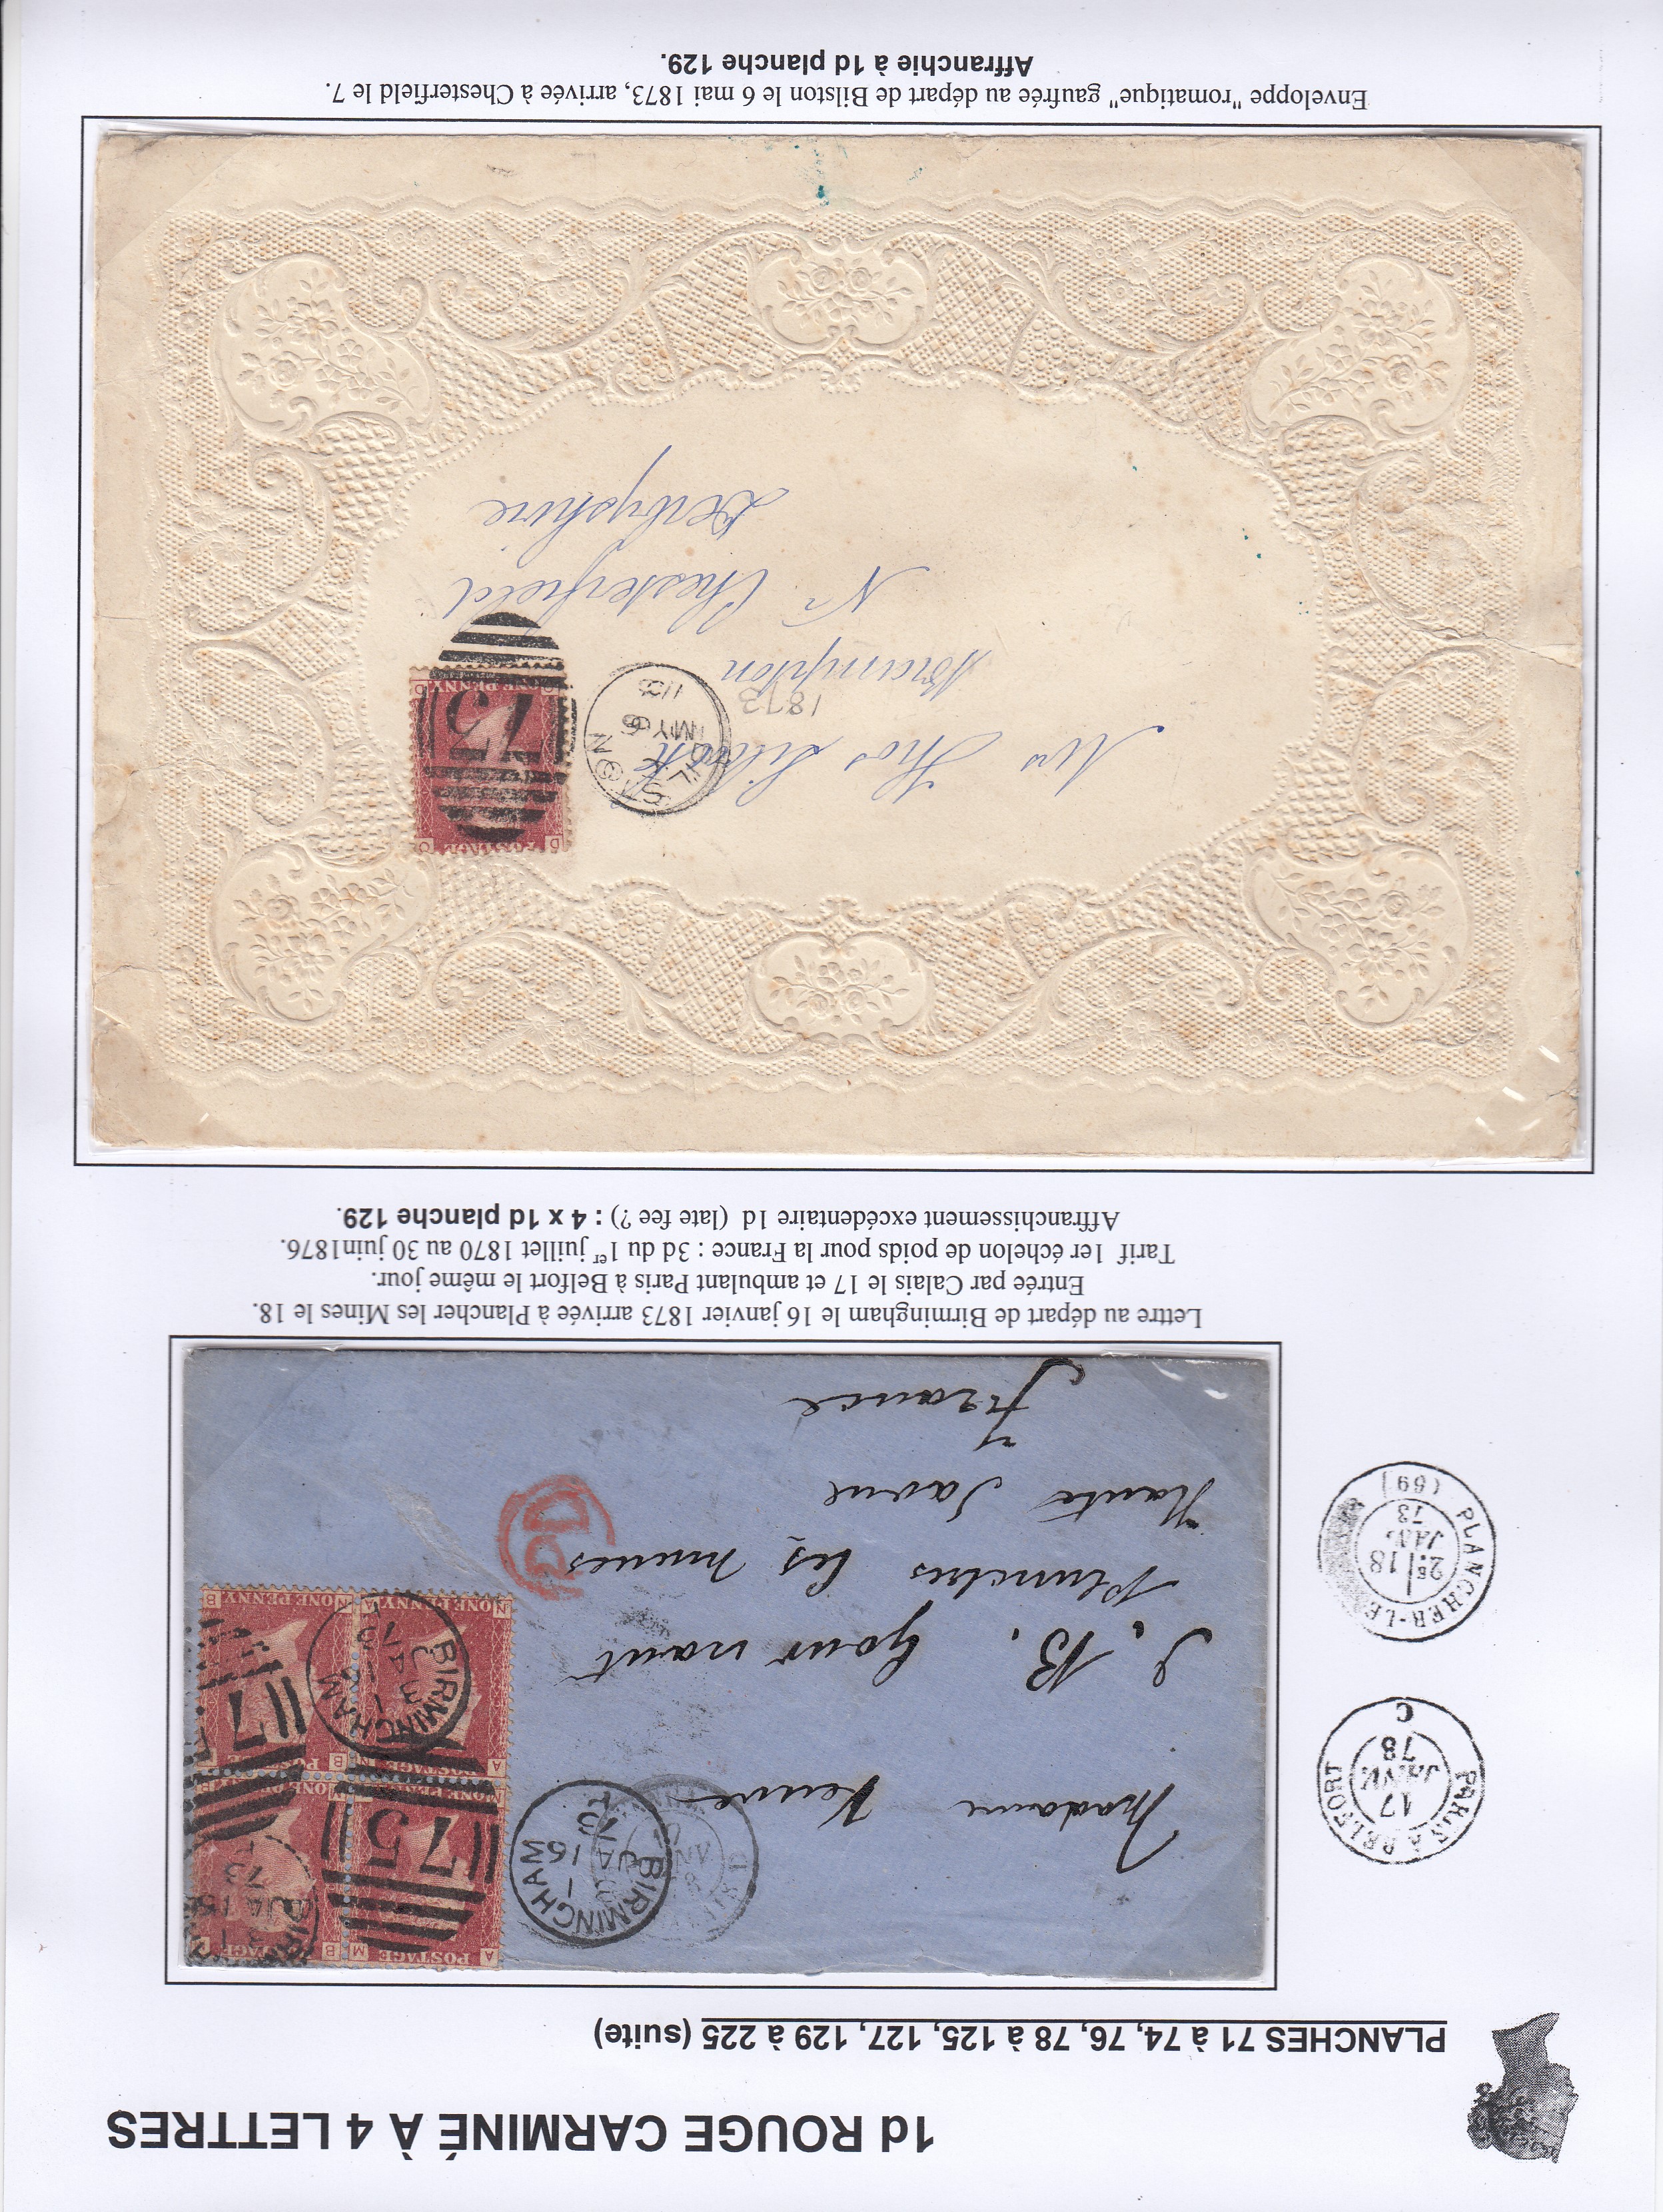 1d ROUGE CARMINÉ À 4 LETTRES
PLANCHES 71 à 74, 76, 78 à 125, 127, 129 à 225 (suite)
PARIS A BELFORT
17
JANV.
73
C
PLANCHER-LE
2E 18
JANV.
73
(69)
BIRMINGHAM
1
JA 15
73
F
A POSTAGE M
B
75
BIRMINGHAM
JA 15
73
ONE PENNY
BIRMINGHAM
75
N ONE PENNY A
N ONE PENNY B
PD
Madame Veuve
J. B. Gour naut
Planches les mines
Haute Saone
France
Lettre au départ de Birmingham le 16 janvier 1873 arrivée à Plancher les Mines le 18.
Entrée par Calais le 17 et ambulant Paris à Belfort le même jour.
Tarif 1er échelon de poids pour la France : 3d du 1er juillet 1870 au 30 juin1876.
Affranchissement excédentaire 1d (late fee ?) : 4 x 1d planche 129.
BILSTON
MY 6
73
75
ONE PENNY
Mrs Thos
1873
Brampton
Nr Chesterfield
Derbyshire
Enveloppe "romatique" gaufrée au départ de Bilston le 6 mai 1873, arrivée à Chesterfield le 7.
Affranchie à 1d planche 129.